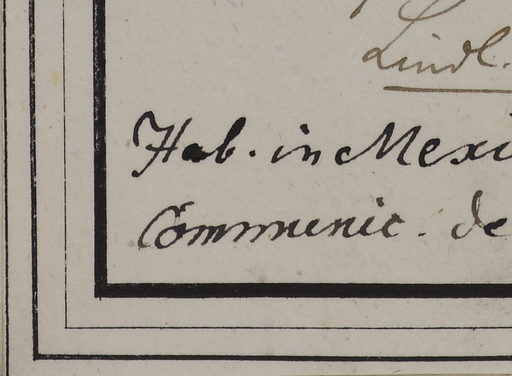 Lindl.
Hab. in Mexi
Communic. de